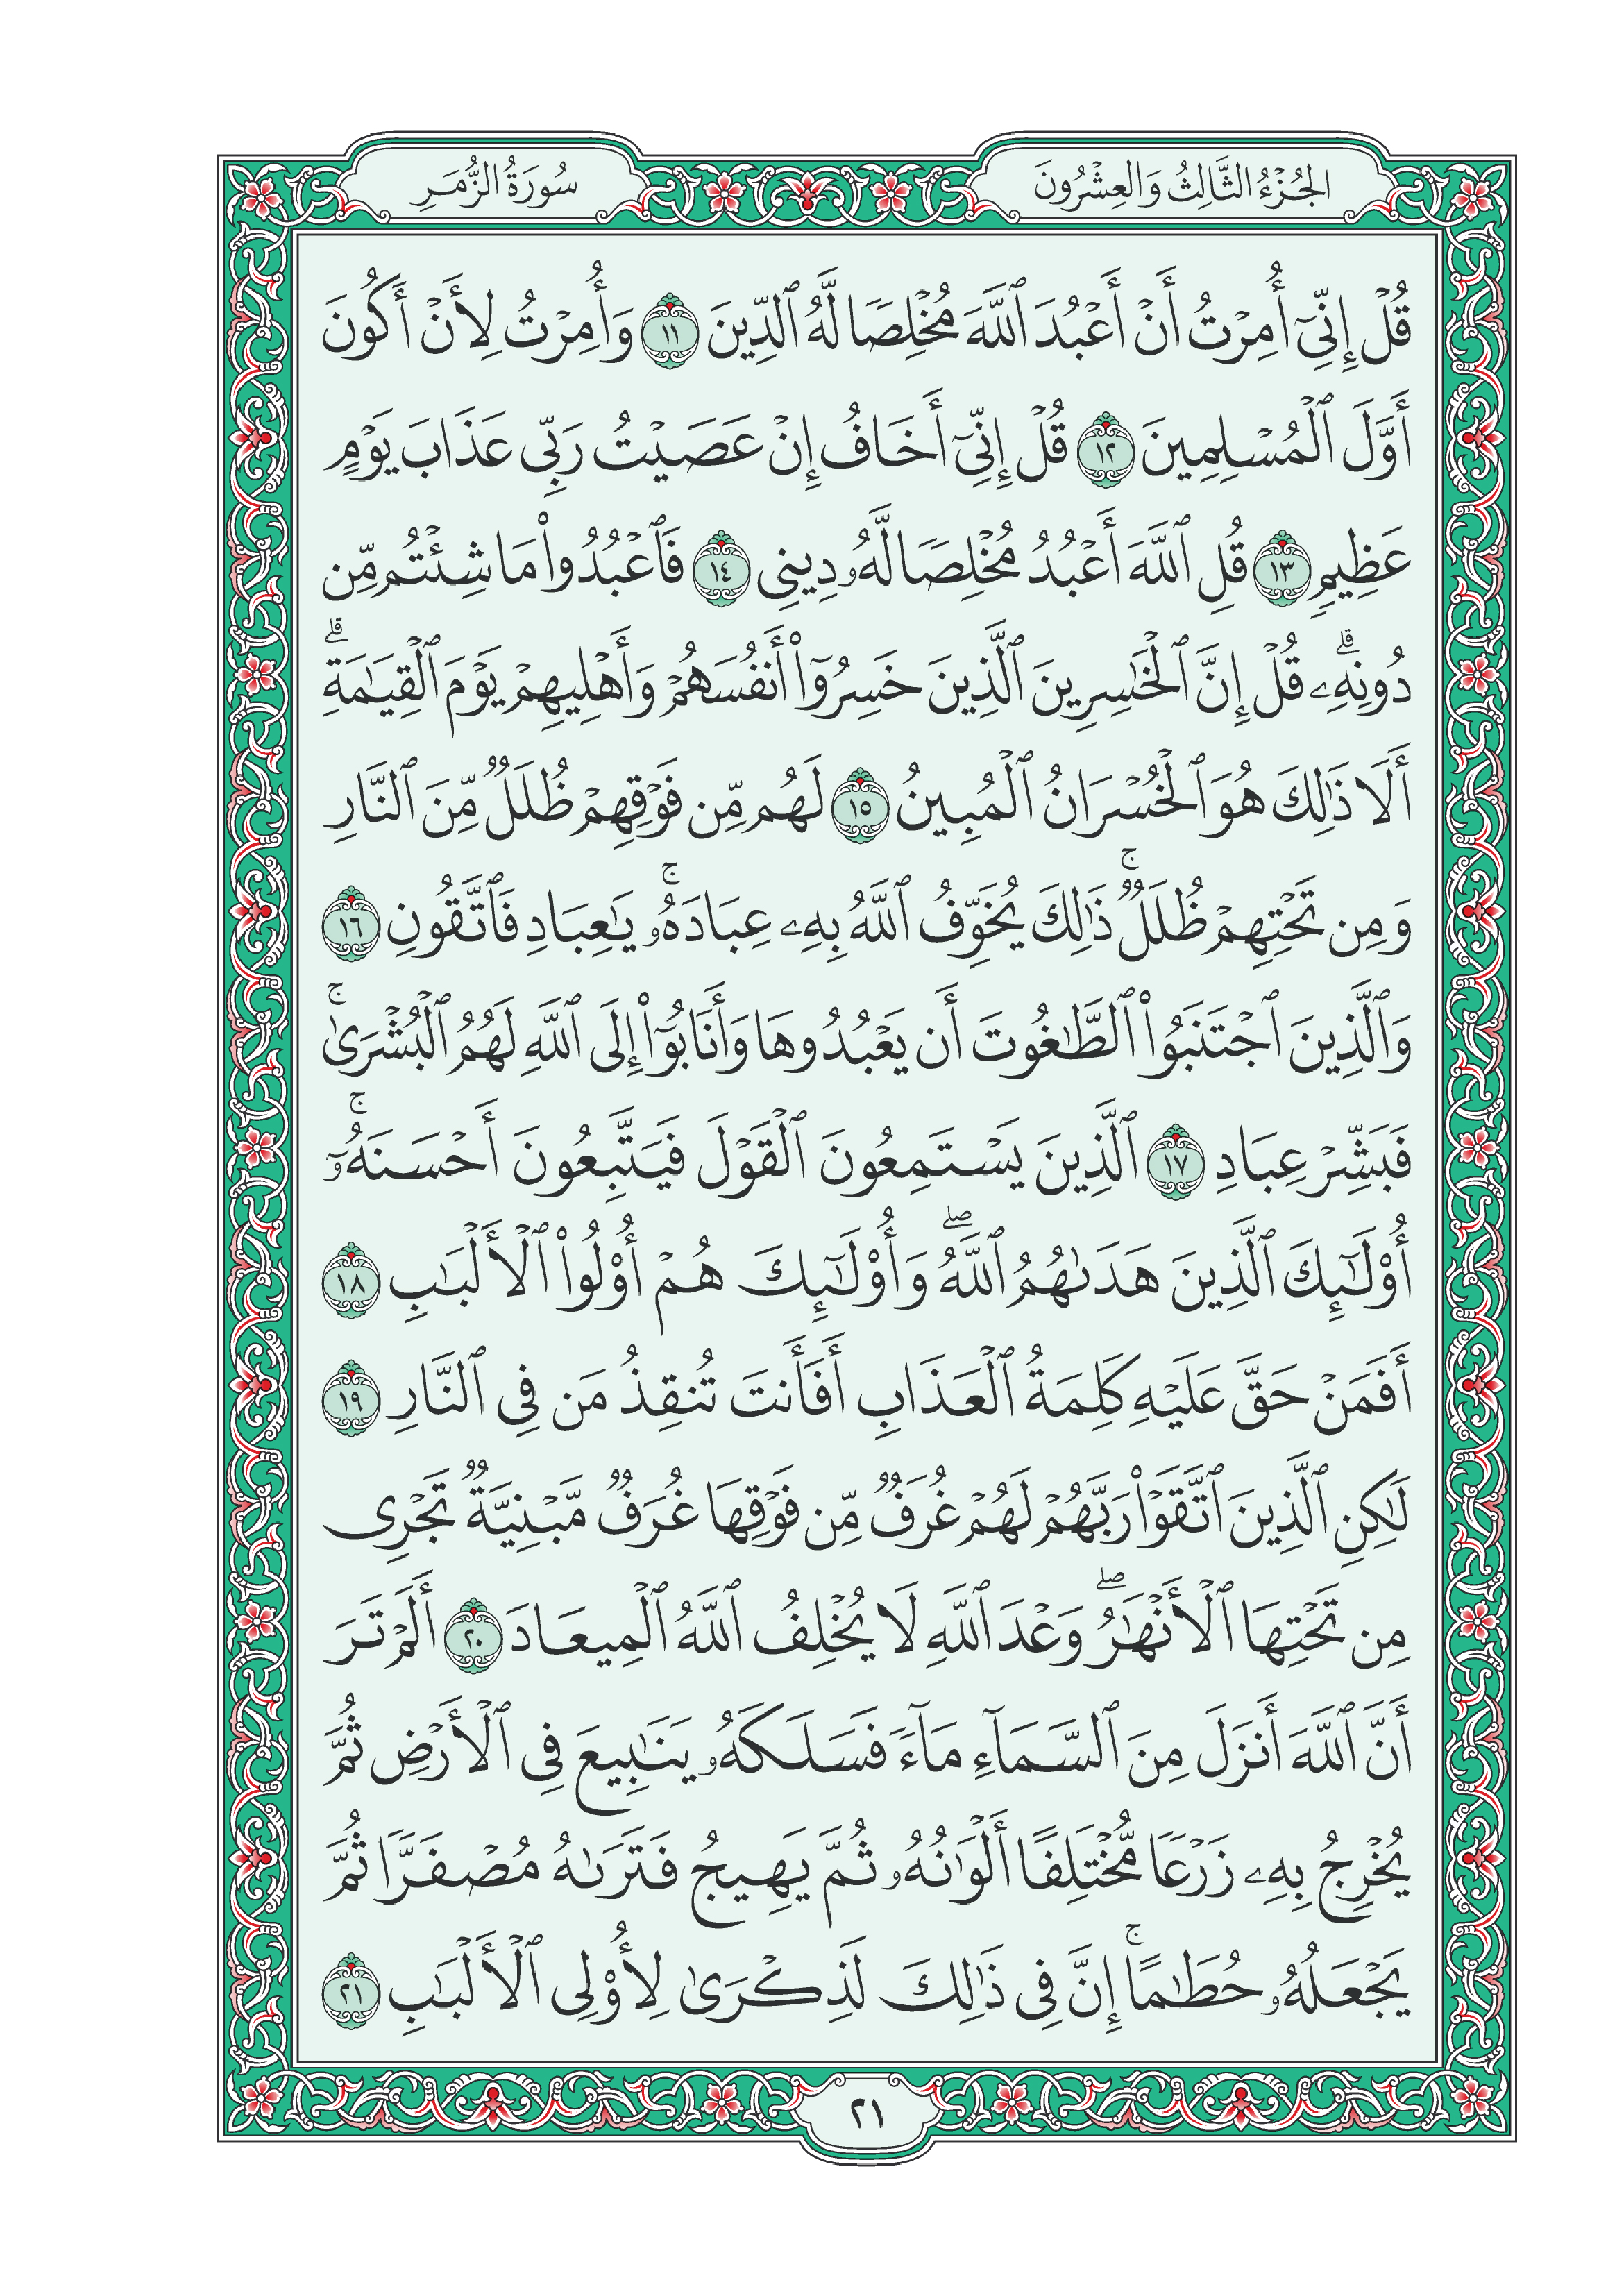 الجُزْءُ الثَّالِثُ وَالعِشْرُونَ
سُورَةُ الزُّمَرِ
قُلْ إِنِّيٓ أُمِرْتُ أَنْ أَعْبُدَ ٱللَّهَ مُخْلِصًا لَّهُ ٱلدِّينَ ١١ وَأُمِرْتُ لِأَنْ أَكُونَ
أَوَّلَ ٱلْمُسْلِمِينَ ١٢ قُلْ إِنِّيٓ أَخَافُ إِنْ عَصَيْتُ رَبِّي عَذَابَ يَوْمٍ
عَظِيمٍ ١٣ قُلِ ٱللَّهَ أَعْبُدُ مُخْلِصًا لَّهُۥ دِينِي ١٤ فَٱعْبُدُوا۟ مَا شِئْتُم مِّن
دُونِهِۦ ۗ قُلْ إِنَّ ٱلْخَـٰسِرِينَ ٱلَّذِينَ خَسِرُوٓا۟ أَنفُسَهُمْ وَأَهْلِيهِمْ يَوْمَ ٱلْقِيَـٰمَةِ ۗ
أَلَا ذَٰلِكَ هُوَ ٱلْخُسْرَانُ ٱلْمُبِينُ ١٥ لَهُم مِّن فَوْقِهِمْ ظُلَلٌ مِّنَ ٱلنَّارِ
وَمِن تَحْتِهِمْ ظُلَلٌ ۚ ذَٰلِكَ يُخَوِّفُ ٱللَّهُ بِهِۦ عِبَادَهُۥ ۚ يَـٰعِبَادِ فَٱتَّقُونِ ١٦
وَٱلَّذِينَ ٱجْتَنَبُوا۟ ٱلطَّـٰغُوتَ أَن يَعْبُدُوهَا وَأَنَابُوٓا۟ إِلَى ٱللَّهِ لَهُمُ ٱلْبُشْرَىٰ ۚ
فَبَشِّرْ عِبَادِ ١٧ ٱلَّذِينَ يَسْتَمِعُونَ ٱلْقَوْلَ فَيَتَّبِعُونَ أَحْسَنَهُۥٓ ۚ
أُو۟لَـٰٓئِكَ ٱلَّذِينَ هَدَىٰهُمُ ٱللَّهُ ۖ وَأُو۟لَـٰٓئِكَ هُمْ أُو۟لُوا۟ ٱلْأَلْبَـٰبِ ١٨
أَفَمَنْ حَقَّ عَلَيْهِ كَلِمَةُ ٱلْعَذَابِ أَفَأَنتَ تُنقِذُ مَن فِي ٱلنَّارِ ١٩
لَـٰكِنِ ٱلَّذِينَ ٱتَّقَوْا۟ رَبَّهُمْ لَهُمْ غُرَفٌ مِّن فَوْقِهَا غُرَفٌ مَّبْنِيَّةٌ تَجْرِي
مِن تَحْتِهَا ٱلْأَنْهَـٰرُ ۖ وَعْدَ ٱللَّهِ لَا يُخْلِفُ ٱللَّهُ ٱلْمِيعَادَ ٢٠ أَلَمْ تَرَ
أَنَّ ٱللَّهَ أَنزَلَ مِنَ ٱلسَّمَآءِ مَآءً فَسَلَكَهُۥ يَنَـٰبِيعَ فِي ٱلْأَرْضِ ثُمَّ
يُخْرِجُ بِهِۦ زَرْعًا مُّخْتَلِفًا أَلْوَٰنُهُۥ ثُمَّ يَهِيجُ فَتَرَىٰهُ مُصْفَرًّا ثُمَّ
يَجْعَلُهُۥ حُطَـٰمًا ۚ إِنَّ فِي ذَٰلِكَ لَذِكْرَىٰ لِأُو۟لِي ٱلْأَلْبَـٰبِ ٢١
٢١